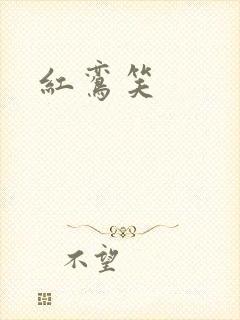 红鸾笑
不望